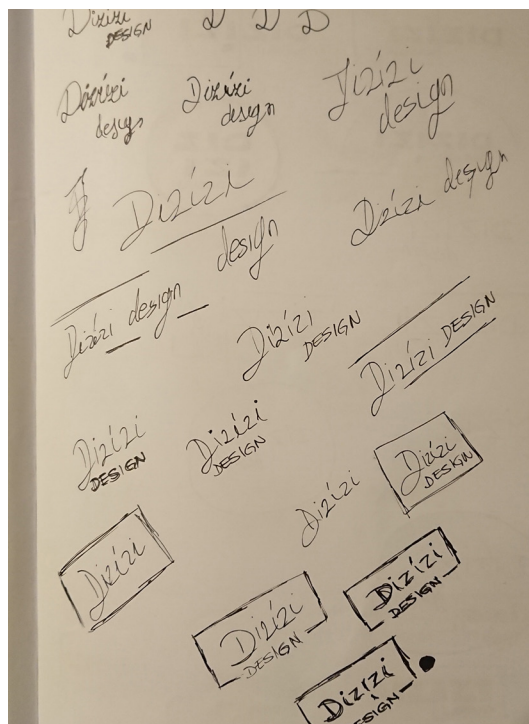 Dizízi
DESIGN
D D D
Dizízi
design
Dizízi
design
Dizízi
design
Dizízi
design
Dizízi design
Dizízi design
Dizízi
DESIGN
Dizízi DESIGN
Dizízi
DESIGN
Dizízi
DESIGN
Dizízi
DESIGN
Dizízi
Dizízi
Dizízi
DESIGN
Dizízi
DESIGN
Dizízi
DESIGN